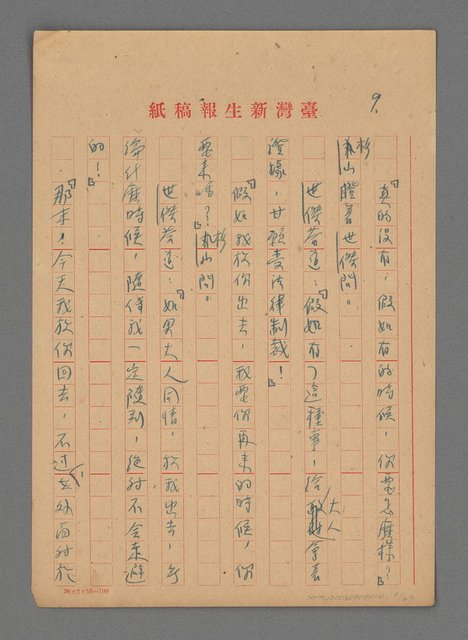 9.
臺灣新生報稿紙
「真的沒有，假如有的時候，你要怎麼樣？」
杉山瞪著世傑問。
世傑答道：「假如有了這種事，給大人拿著
證據，甘願受法律制裁！」
「假如我放你出去，我要你再來的時候，你
要來嗎？」杉山問。
世傑答道：「如果大人同情，放我出去，無
論什麼時候，隨傳我一定隨到，絕對不會來避
的！」
「那末，今天我放你回去，不過在外面對於
24×2×15=100